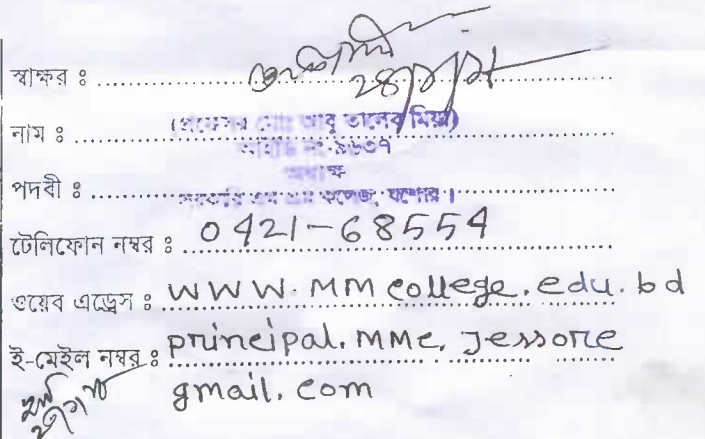 স্বাক্ষর ঃ
নাম ঃ (প্রফেসর মোঃ আবু তালেব মিয়া)
আইডি নং-৯৬৩৭
অধ্যক্ষ
পদবী ঃ সরকারি এম এম কলেজ, যশোর।
টেলিফোন নম্বর ঃ 0421-68554
ওয়েব এড্রেস ঃ www.MMcollege.edu.bd
ই-মেইল নম্বর ঃ principal.MMc.Jessore
gmail.com